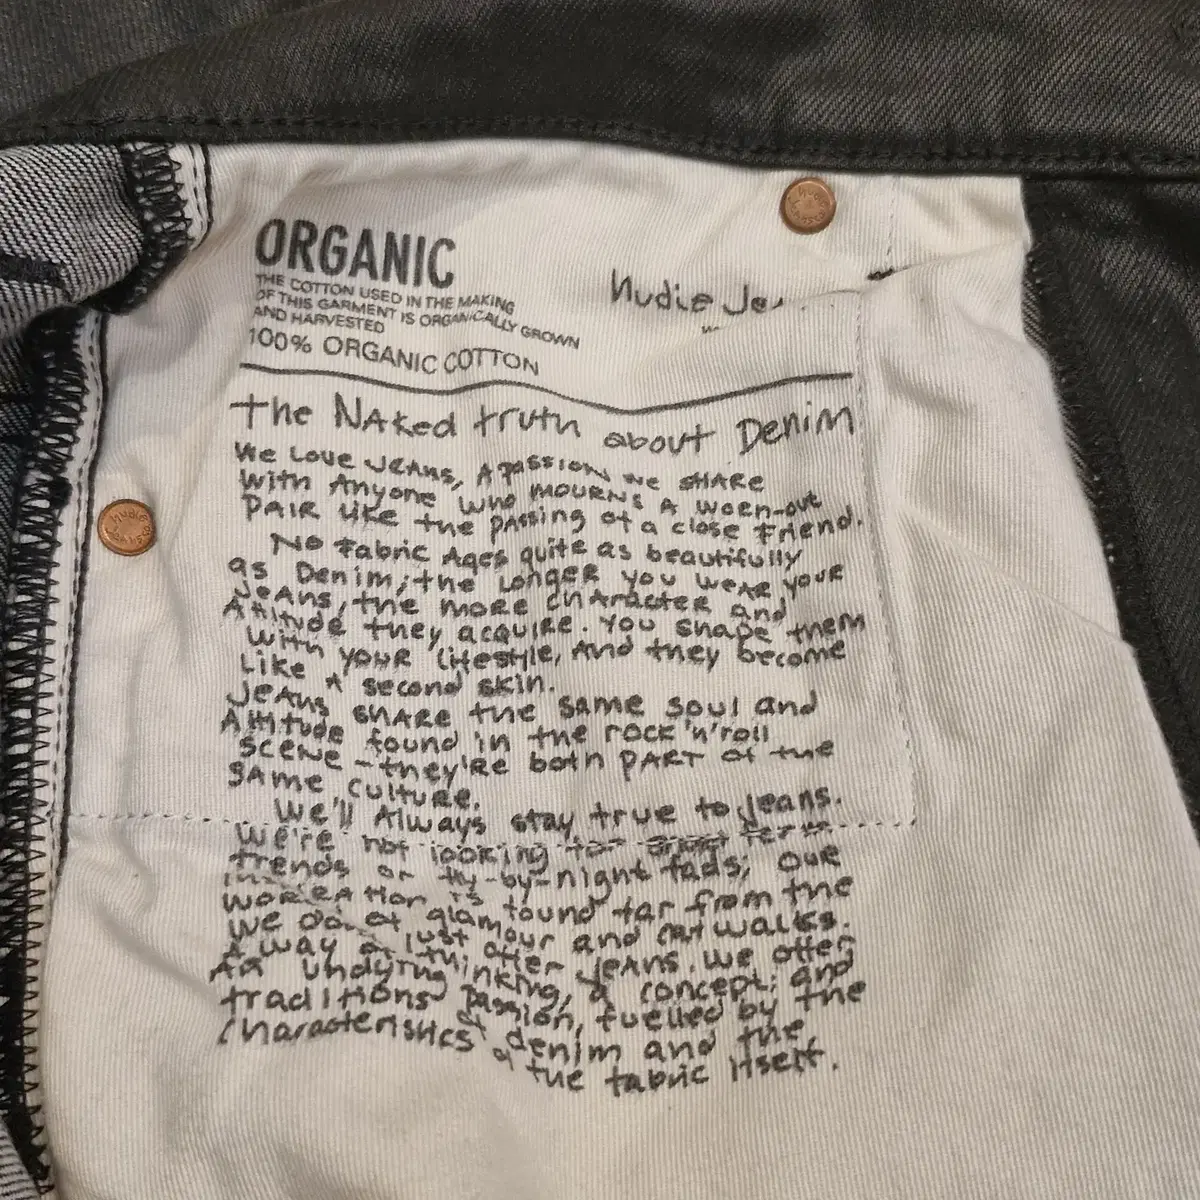 ORGANIC
THE COTTON USED IN THE MAKING
OF THIS GARMENT IS ORGANICALLY GROWN
AND HARVESTED
100% ORGANIC COTTON
Nudie
the NAKed truth about Denim
We Love JEANS, A passion we SHARE
with Anyone who MOURNS A worn-out
PAIR like the passing of a close Friend.
No Fabric Ages quite as beautifully
as Denim; the Longer you WEAR YOUR
JEANS, the more CHARACTER and
Attitude they acquire. You shape them
with YOUR lifestyle, And they become
Like A second skin.
JEANS SHARE the same soul and
Attitude found in the rock 'n' roll
SCENE - they're both PART of the
SAME culture.
We'll Always stay true to Jeans.
We're not looking for short term
trends or fly-by-night fads; OUR
found far from the
glamour and catwalks.
We do not just offer JEANS. We offer
A way of thinking, a concept; and
undying passion, fuelled by the
traditions of denim and the
characteristics of the fabric itself.
Nudie
Nudie